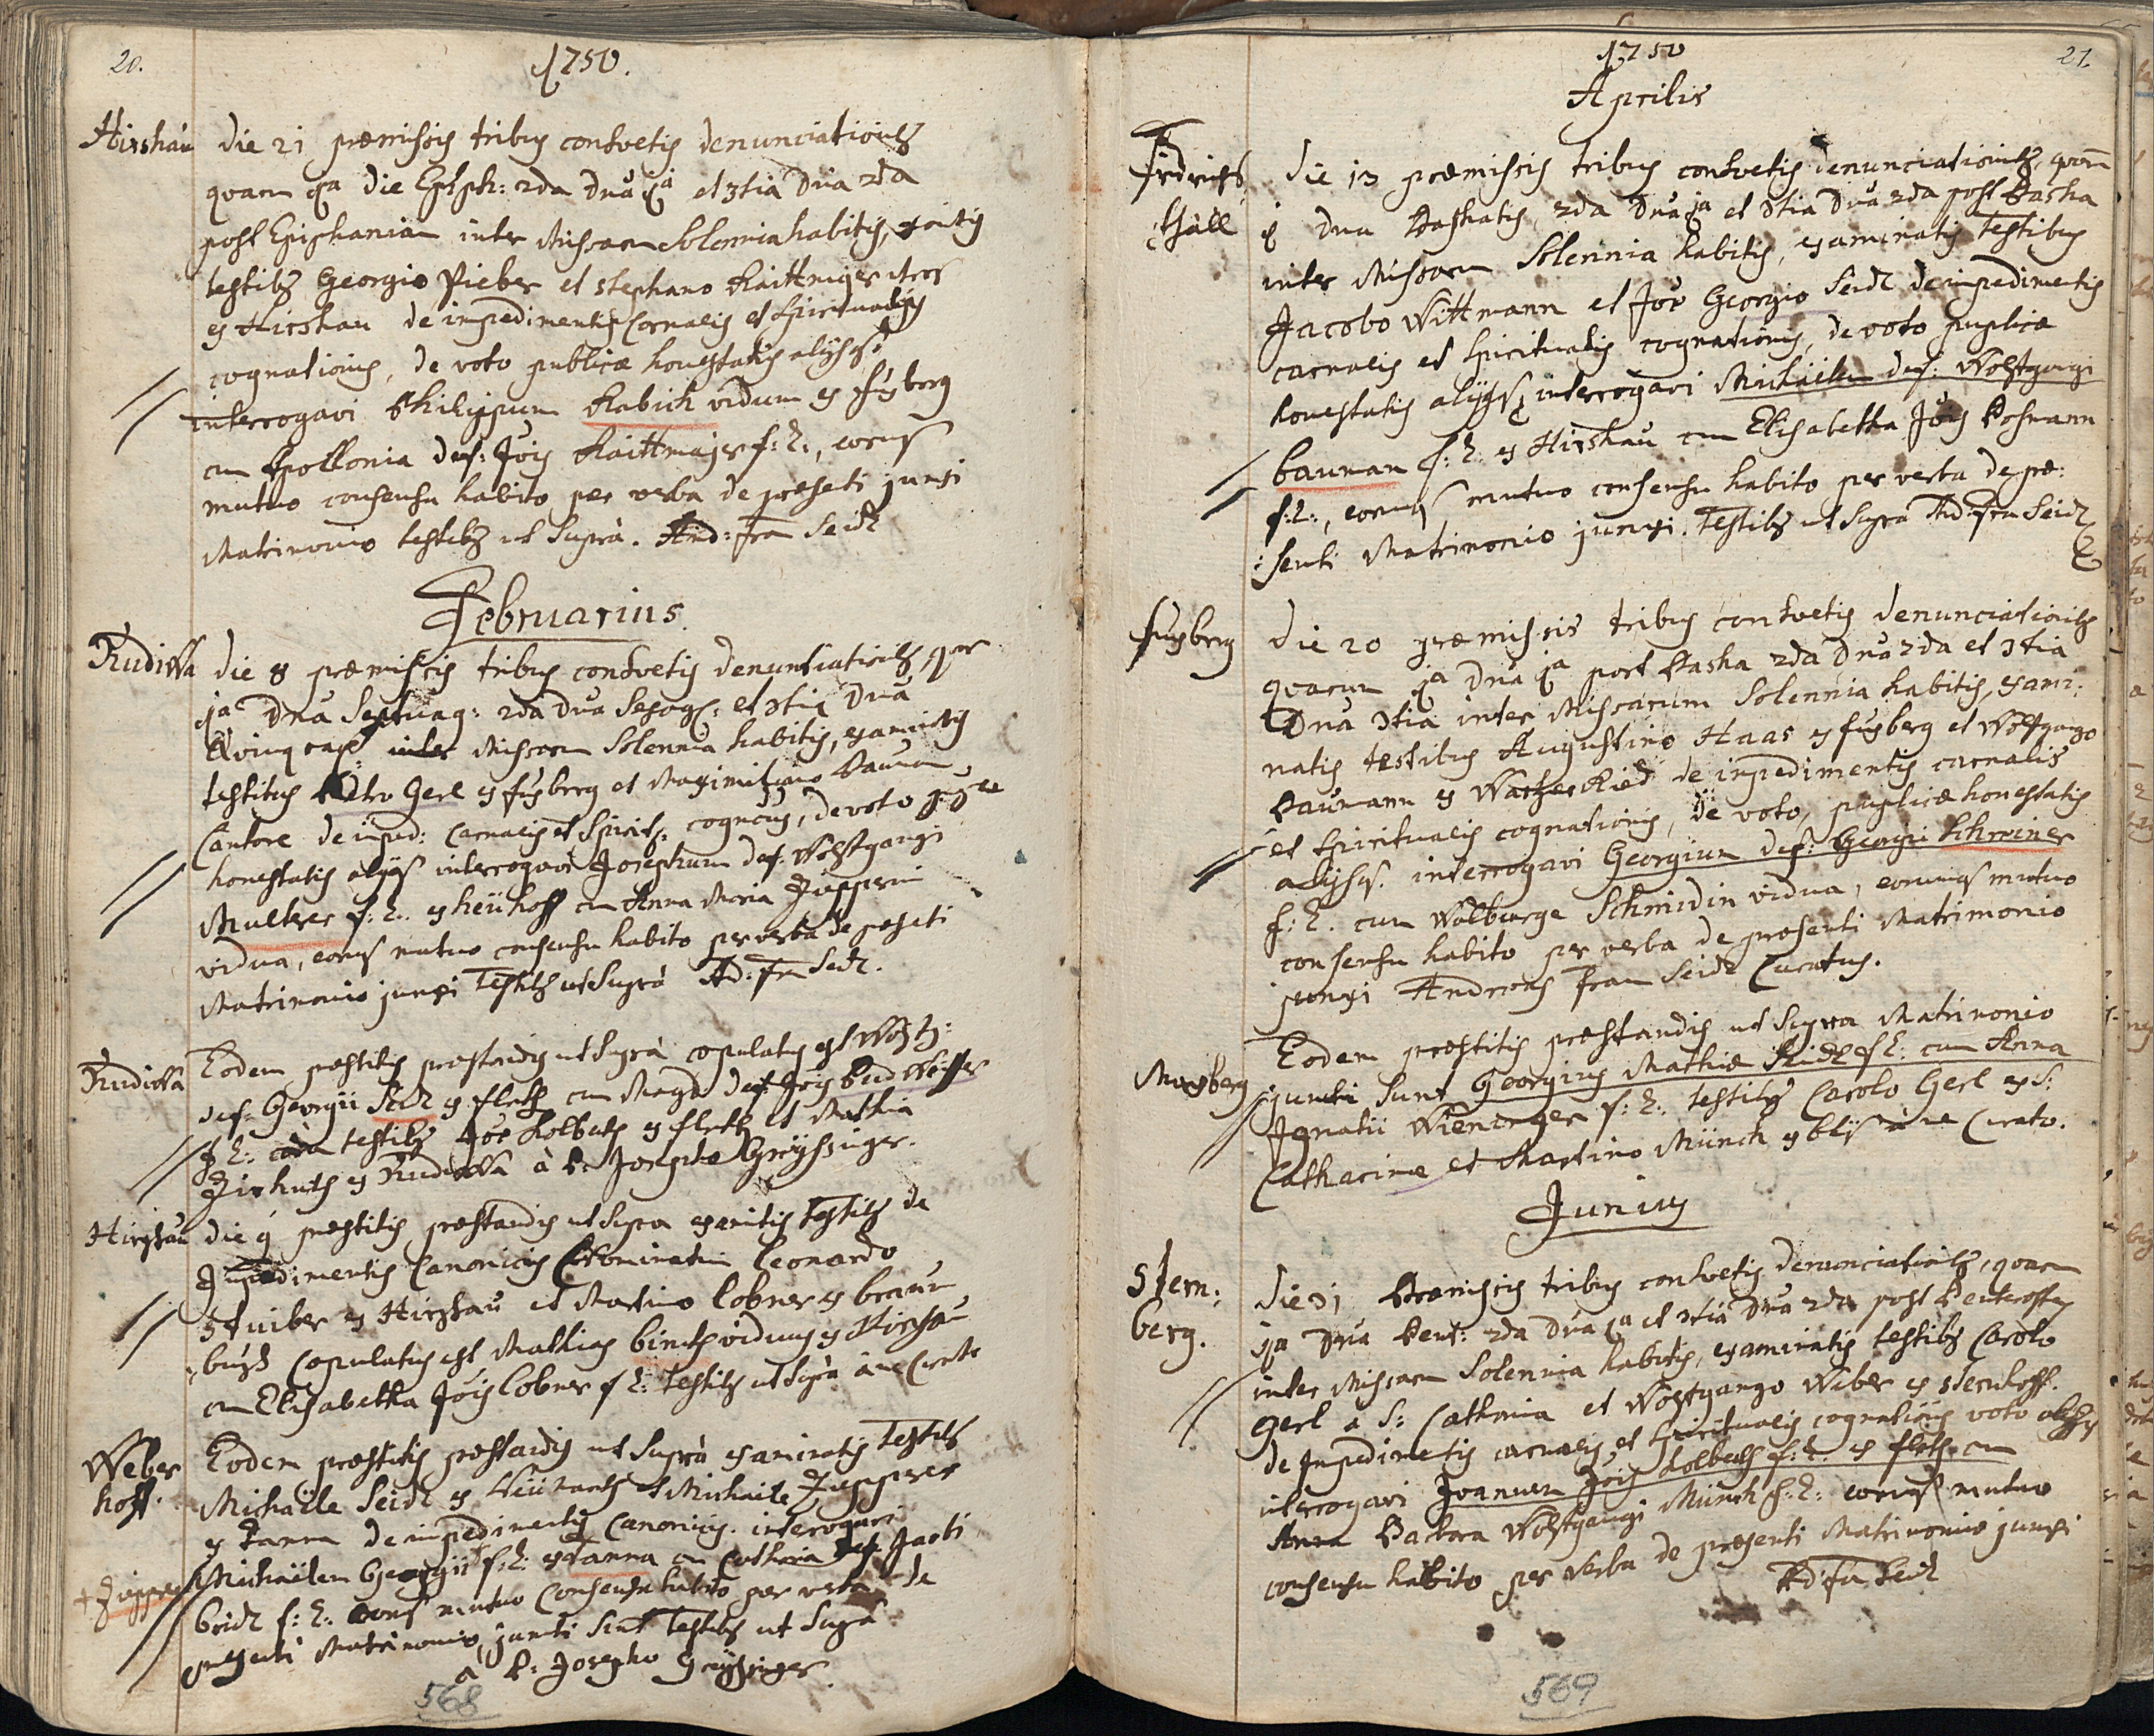 20.
1750.
Hirshau die 21 præmissis tribus consvetis denunciationibz
quarum 1ma die Epiph: 2da Dnca 1a et 3tia Dnca 2da
post Epiphaniam inter Missarum Solennia habitis,
testibz Georgio Pieber et Stephano Raittmajer
ex Hirshau de impedimentis Carnalis et Spiritualis
cognationis, de voto publicæ honestatis alijsq
interrogavi Philippum Rabich viduum ex fuxberg
cum Apollonia def: Jois Raittmajer f: l:, eorumq
mutuo consensu habito per verba de præsenti junxi
Matrimonio testibz ut Suprà. And: fra Seidl
Februarius.
Rudissa die 8 præmissis tribus consvetis denuntiationibz, qm
1a Dnca Septuag: 2da Dnca Sexag: et 3tia Dnca
Quinquag: inter Missarum Solennia habitis, examinatis
testibus Petro Gerl ex fuxberg et Maximiliano Bauman
Cantore de imped: Carnalis et Spirit: cogncis, de voto
honestatis alijsq interrogavi Josephum def: Wolfgangi
Multzer f: l: ex heühoff cum Anna Maria Zupperin
vidua, eorumq mutuo consensu habito per verba de præsenti
Matrimonio junxi Testibz ut Suprà Ad: fra Seidl.
Rudissa Eodem præstitis præstandis ut Suprà copulatus est Wolfg:
def: Georgii Seidl ex fleth cum Magd: def: Jois Pudweiser
f l: cora testibz Joe Kolbeth ex fleth et Mathia
Zirhuth ex Rudissa à P. Josepho Greyssinger.
Hirshau die 9 præstitis præstandis ut Supra examinatis testibz de
Impedimentis Canonicis Nominatim Leonardo
Stuiber ex Hirshau et Martino Lobner ex braun
bush Copulatus est Mathias binth viduus ex Hirshau
cum Elisabetha Jois Lobner f l: testibz ut Suprà à me Curato
Weber Eodem præstitis præstandis ut Suprà examinatis testibz
hoff. Michaële Seidl ex et Michaële Zupper
ex Tanna de impedimentis Canonicis. interrogavi
+ Zupper Michaëlem Georgii f: l: ex Tanna cum Catharina def Jacobi
bridl f: l: eorumq mutuo Consensu habito per verba de
præsenti Matrimonio juncti Sunt testibz ut Supra
à P: Josepho Greyssinger.
568
1750
21
Aprilis
Fridrichs die 13 præmissis tribus consvetis denunciationibz quarum
thall 1 Dnca Paschatis 2da Dnca 1ma et 3tia Dnca 2da post Pascha
inter Missarum Solennia habitis, examinatis testibus
Jacobo Wittmann et Joe Georgio Seidl de impedimentis
carnalis et Spiritualis cognationis, de voto puplicæ
honestatis alijsq interrogavi Michaelem def: Wolfgangi
bauman f: l: ex Hirshau cum Elisabetha Jois Hofmann
f: l:, eorumq mutuo consensu habito per verba de præ:
:senti Matrimonio junxi. Testibz ut Supra And fra Seidl
fuxberg die 20 præmissis tribus consvetis denunciationibz
quarum 1ma Dnca 1ma post Pascha 2da Dnca 2da et 3tia
Dnca 3tia inter Missarum Solennia habitis, exami:
natis testibus Augustino Haas ex fuxberg et Wolfgango
Baumann ex de impedimentis carnalis
et Spiritualis cognationis, de voto, puplicæ honestatis
alijsq. interrogavi Georgium def: Georgii Schreiner
f: l. cum Walburga Schmidin vidua, eorumq mutuo
consensu habito per verba de præsenti Matrimonio
junxi Andreas Fran Seidl Curatus.
Maxberg Eodem præstitis præstandis ut Supra Matrimonio
juncti Sunt Georgius Mathiæ Seidl f l: cum Anna
Ignatii Wieninger f: l:, testibz Carolo Gerl ex S:
Catharina et Martino Münch ex à me Curato.
Junius
Stern: die 31 Præmissis tribus consvetis denunciationibz, quarum
berg. 1ma Dnca Pent: 2da Dnca 1a et 3tia Dnca 2da post Pentecosten
inter Missarum Solennia habitis, examinatis testibz Carolo
Gerl à S: Catharina et Wolfgango Weber ex Sternhoff.
de Impedimetis carnalis, et Spiritualis cognationis voto alijsq
interrogavi Joannem Jois Kolbeth f: l: ex fleth cum
Anna Barbara Wolfgangi Münch f: l: eorumq mutuo
consensu habito per verba de præsenti Matrimonio junxi
Ad: fra Seidl
569